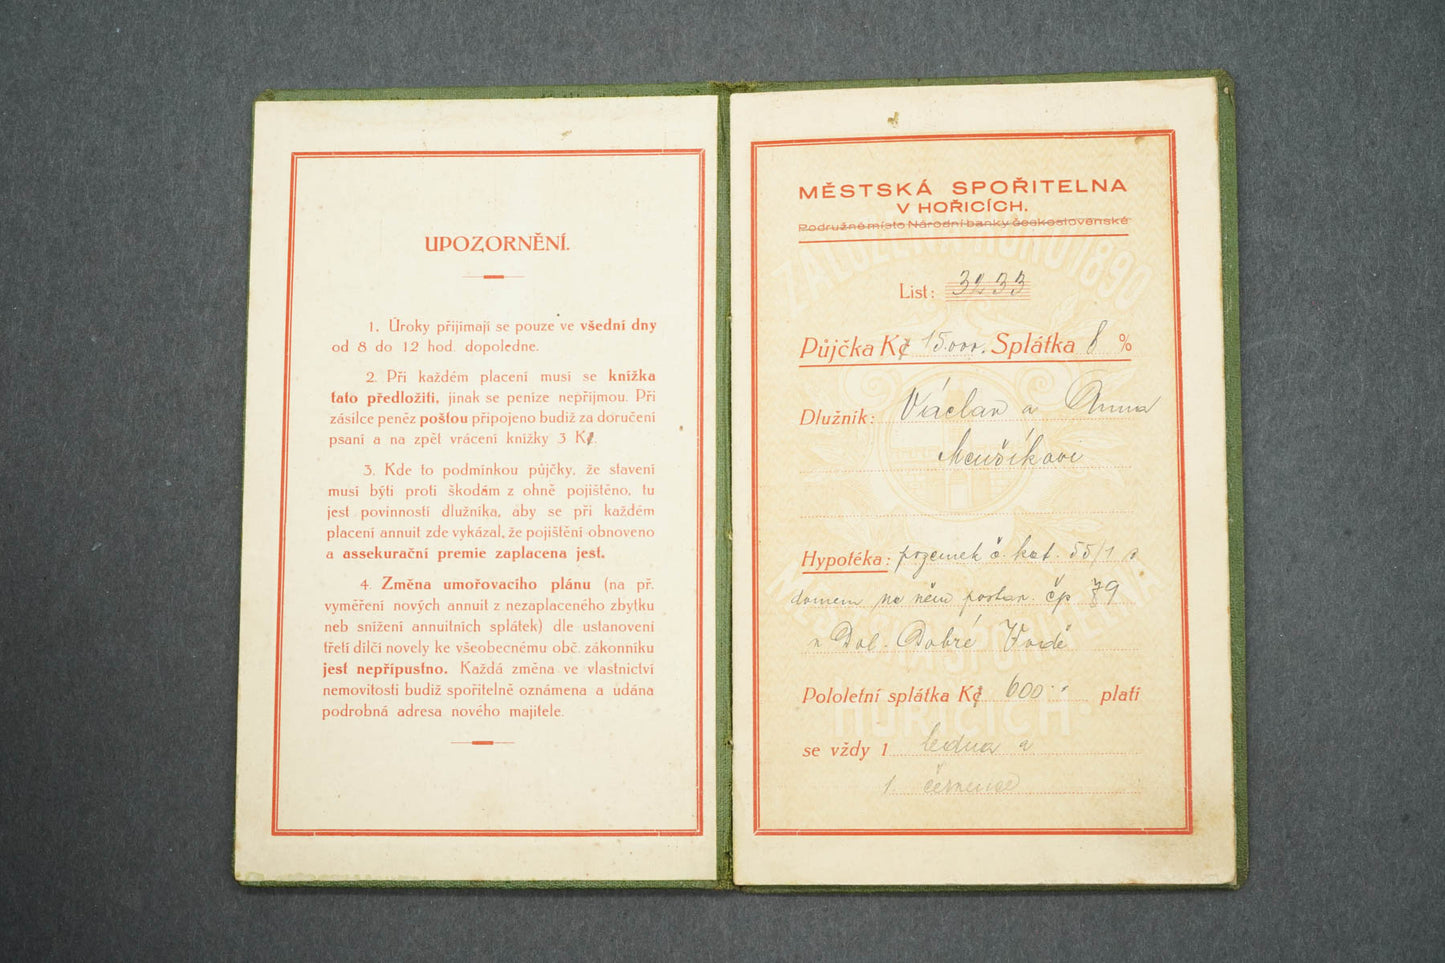 UPOZORNĚNÍ.
1. Úroky přijímají se pouze ve všední dny
od 8 do 12 hod. dopoledne.
2. Při každém placení musí se knížka
tato předložiti, jinak se peníze nepřijmou. Při
zásilce peněz poštou připojeno budiž za doručení
psaní a na zpět vrácení knížky 3 K.
3. Kde to podmínkou půjčky, že stavení
musí býti proti škodám z ohně pojištěno, tu
jest povinností dlužníka, aby se při každém
placení annuit zde vykázal, že pojištění obnoveno
a assekurační premie zaplacena jest.
4. Změna umořovacího plánu (na př.
vyměření nových annuit z nezaplaceného zbytku
neb snížení annuitních splátek) dle ustanovení
třetí dílčí novely ke všeobecnému obč. zákonníku
jest nepřípustno. Každá změna ve vlastnictví
nemovitosti budiž spořitelně oznámena a udána
podrobná adresa nového majitele.
MĚSTSKÁ SPOŘITELNA
V HOŘICÍCH.
Podružné místo Národní banky československé
List: 3233
Půjčka K 15.000. Splátka 8 %
Dlužník: Václav a Anna
Menšíkovi
Hypotéka: pozemek č. kat. 55/1 s
domem na něm postav. čp 79
v Dol. Dobré Vodě
Pololetní splátka K 600.- platí
se vždy 1 ledna a
1. července
ZALOŽENA ROKU 1890
MĚSTSKÁ SPOŘITELNA
HOŘICÍCH